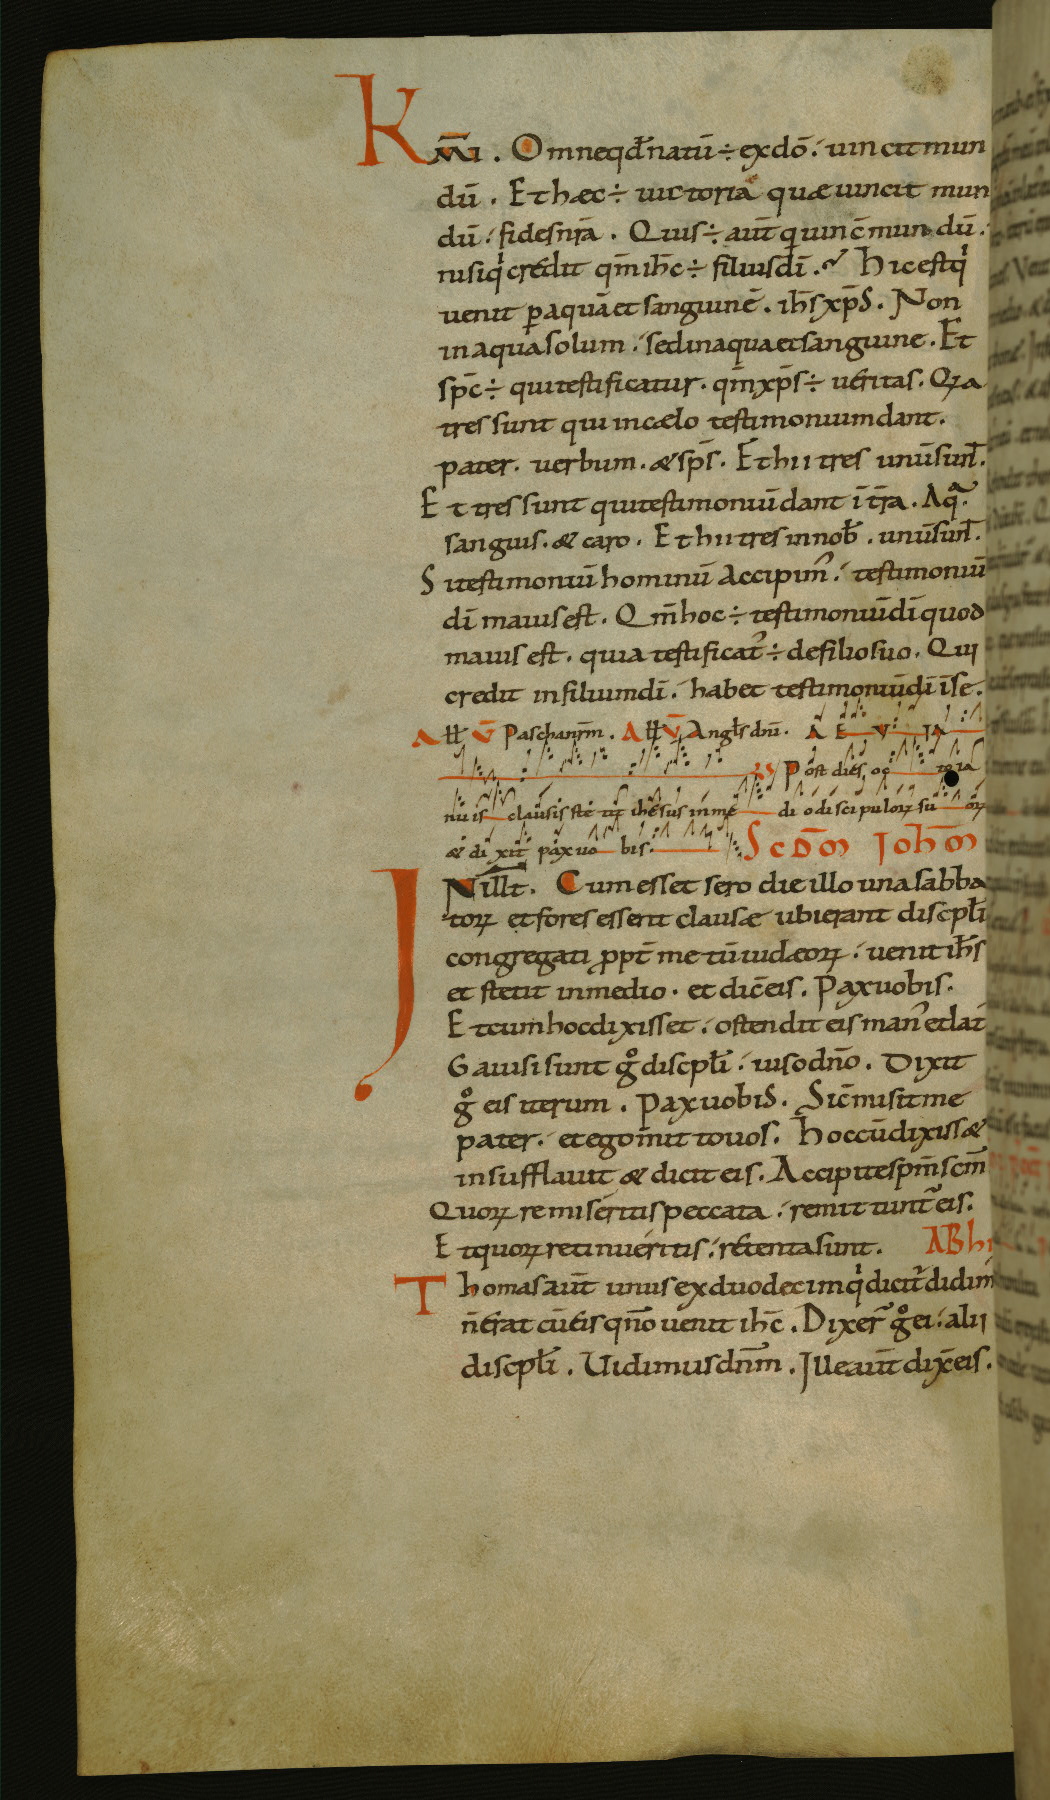 Km̄i . Omneqd̄natū ÷ exdō . uincitmun
dū . Ethæc ÷ uictoria quæuincit mun
dū . fidesnr̄a . Quis ÷ aūt quinc̄mundū .
nisiq̇credit qm̄ih̄c ÷ filiusdī . Hicestq̇
uenit p̄aquāetsanguinē . ih̄sxp̄s . Non
inaquasolum . sedinaquaetsanguine . Et
sp̄c ÷ quitestificatur . qm̄xp̄s ÷ ueritas . Qƺa
tressunt quiincælo testimoniumdant .
pater . uerbum . &sp̄s . Ethiitres unūsun̄t .
Et tressunt quitestimoniūdant ītr̄a . Aqᵃ .
sanguis . & caro . Ethiitresinnob̄ . unūsun̄t .
Sitestimoniūhominū accipim᾿ . testimoniū
dī maiusest . Qm̄hoc ÷ testimoniūdīquod
maiusest . quia testificat᾿ ÷ defiliosuo . Qui
credit infiliumdī . habet testimoniūdīīse .
All̄ V̄ Paschanr̄m . All̄ V̄ Angl̄sdn̄i . A E V IA
Post dies oc to ia
nuis clausis stetit ihesus inme di o discipuloꝝ su oꝝ
& dixit pax uo bis . Scd̄m Joh̄m
INill̄t . Cumesset sero die illo unasabba
toꝝ etforesessent clausæ ubierant discpl̄i
congregati ꝓpt̄ metūiudæoꝝ . uenitih̄s
et stetit inmedio . et dic̄eis . Paxuobis .
Etcumhocdixisset . ostendit eisman᾿etlat᾿
Gauisisunt gºdiscpl̄i . uisodn̄o . Dixit
gº eis iterum . Paxuobis . Sic̄misitme
pater . etegomit̄touos . Hoccūdixiss&
insufflauit & dicit eis . Accipitesp̄ms̄cm̄
Quoꝝ remiseritispeccata . remittunt᾿eis .
Etquoꝝretinueritis . retentasunt . ABhi
Thomasaūt unusexduodecimq̇dicit᾿didim᾿
n̄eratcūeisqn̄o uenit ih̄c . Dixer̄ gºei . alii
discpl̄i . Uidimusdn̄m . Illeaūt dix̄eis .